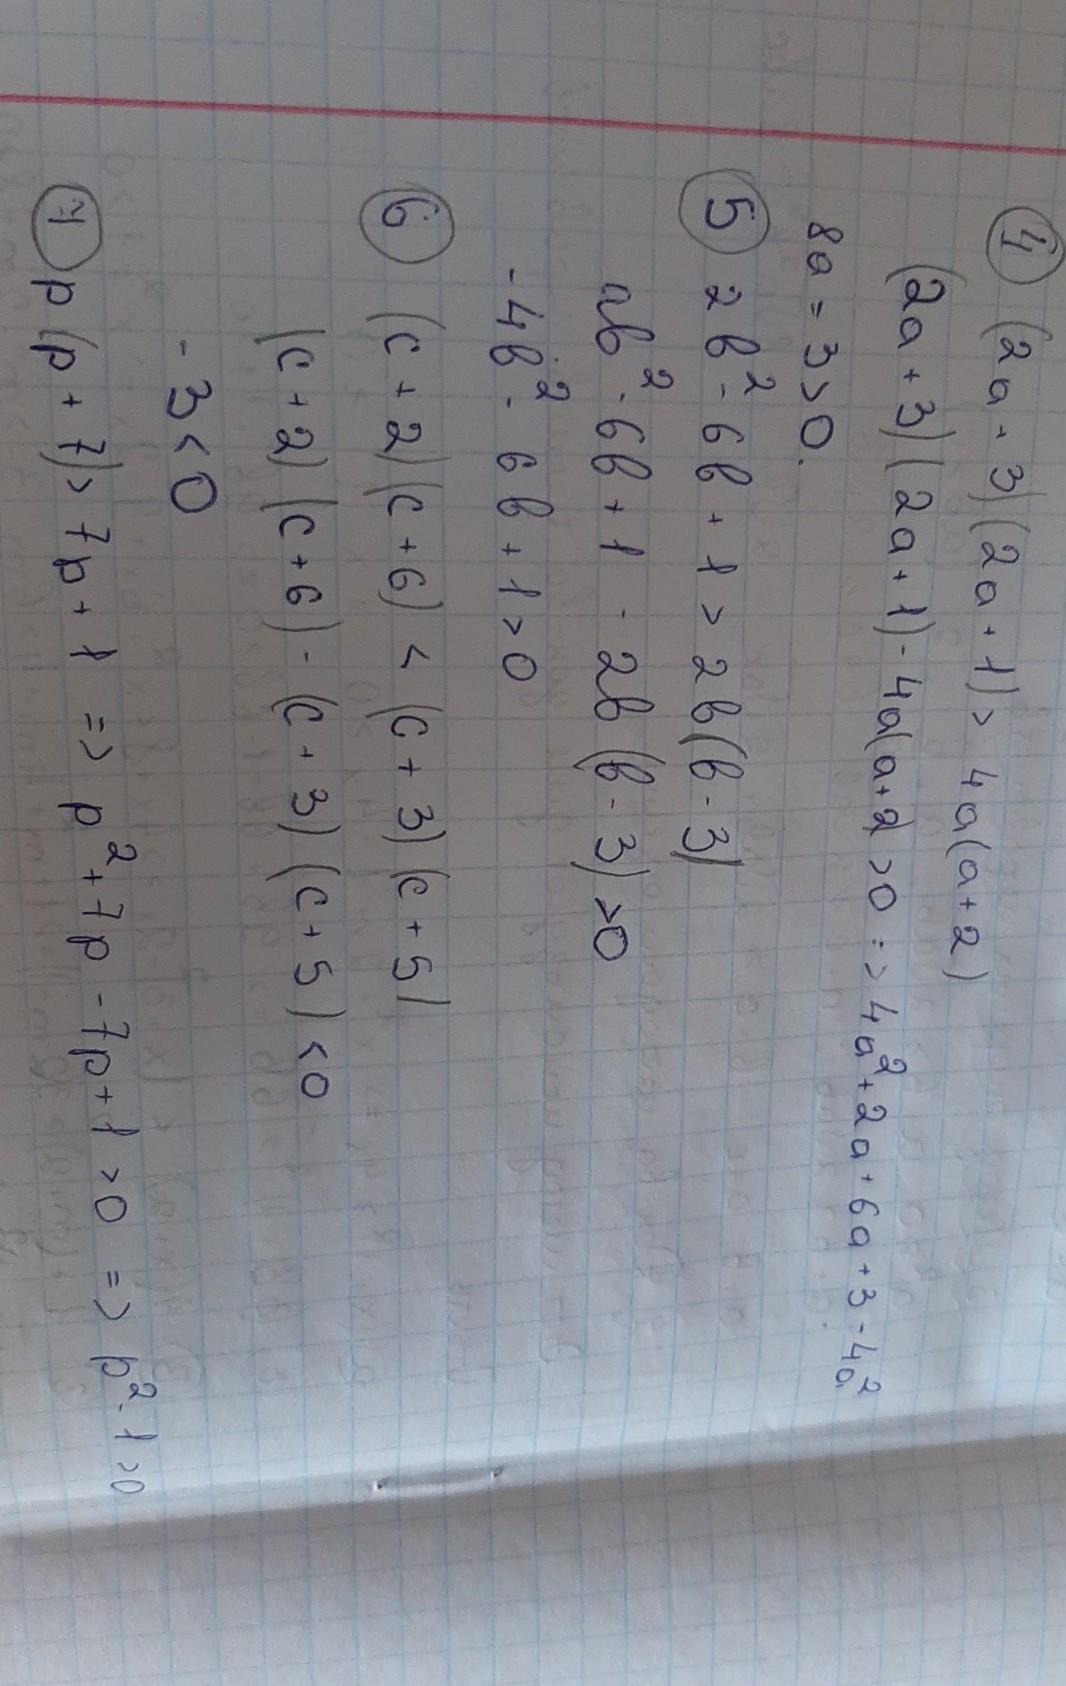 ④ (2a + 3)(2a + 1) > 4a(a + 2)
(2a + 3)(2a + 1) - 4a(a + 2) > 0 => 4a² + 2a + 6a + 3 - 4a²
8a = 3 > 0.
⑤ 2b² - 6b + 1 > 2b(b - 3)
ab² - 6b + 1 - 2b(b - 3) > 0
-4b² - 6b + 1 > 0
⑥ (c + 2)(c + 6) < (c + 3)(c + 5)
(c + 2)(c + 6) - (c + 3)(c + 5) < 0
-3 < 0
⑦ p(p + 7) > 7p + 1 => p² + 7p - 7p + 1 > 0 => p² - 1 > 0